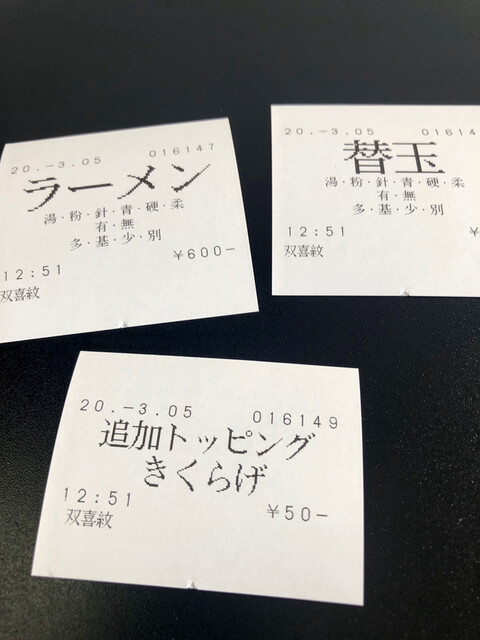 20.-3.05 016147
ラーメン
湯・粉・針・青・硬・柔
有・無
多・基・少・別
12:51 ¥600-
双喜紋
20.-3.05 01614
替玉
湯・粉・針・青・硬・柔
有・無
多・基・少・別
12:51 ¥
双喜紋
20.-3.05 016149
追加トッピング
きくらげ
12:51 ¥50-
双喜紋